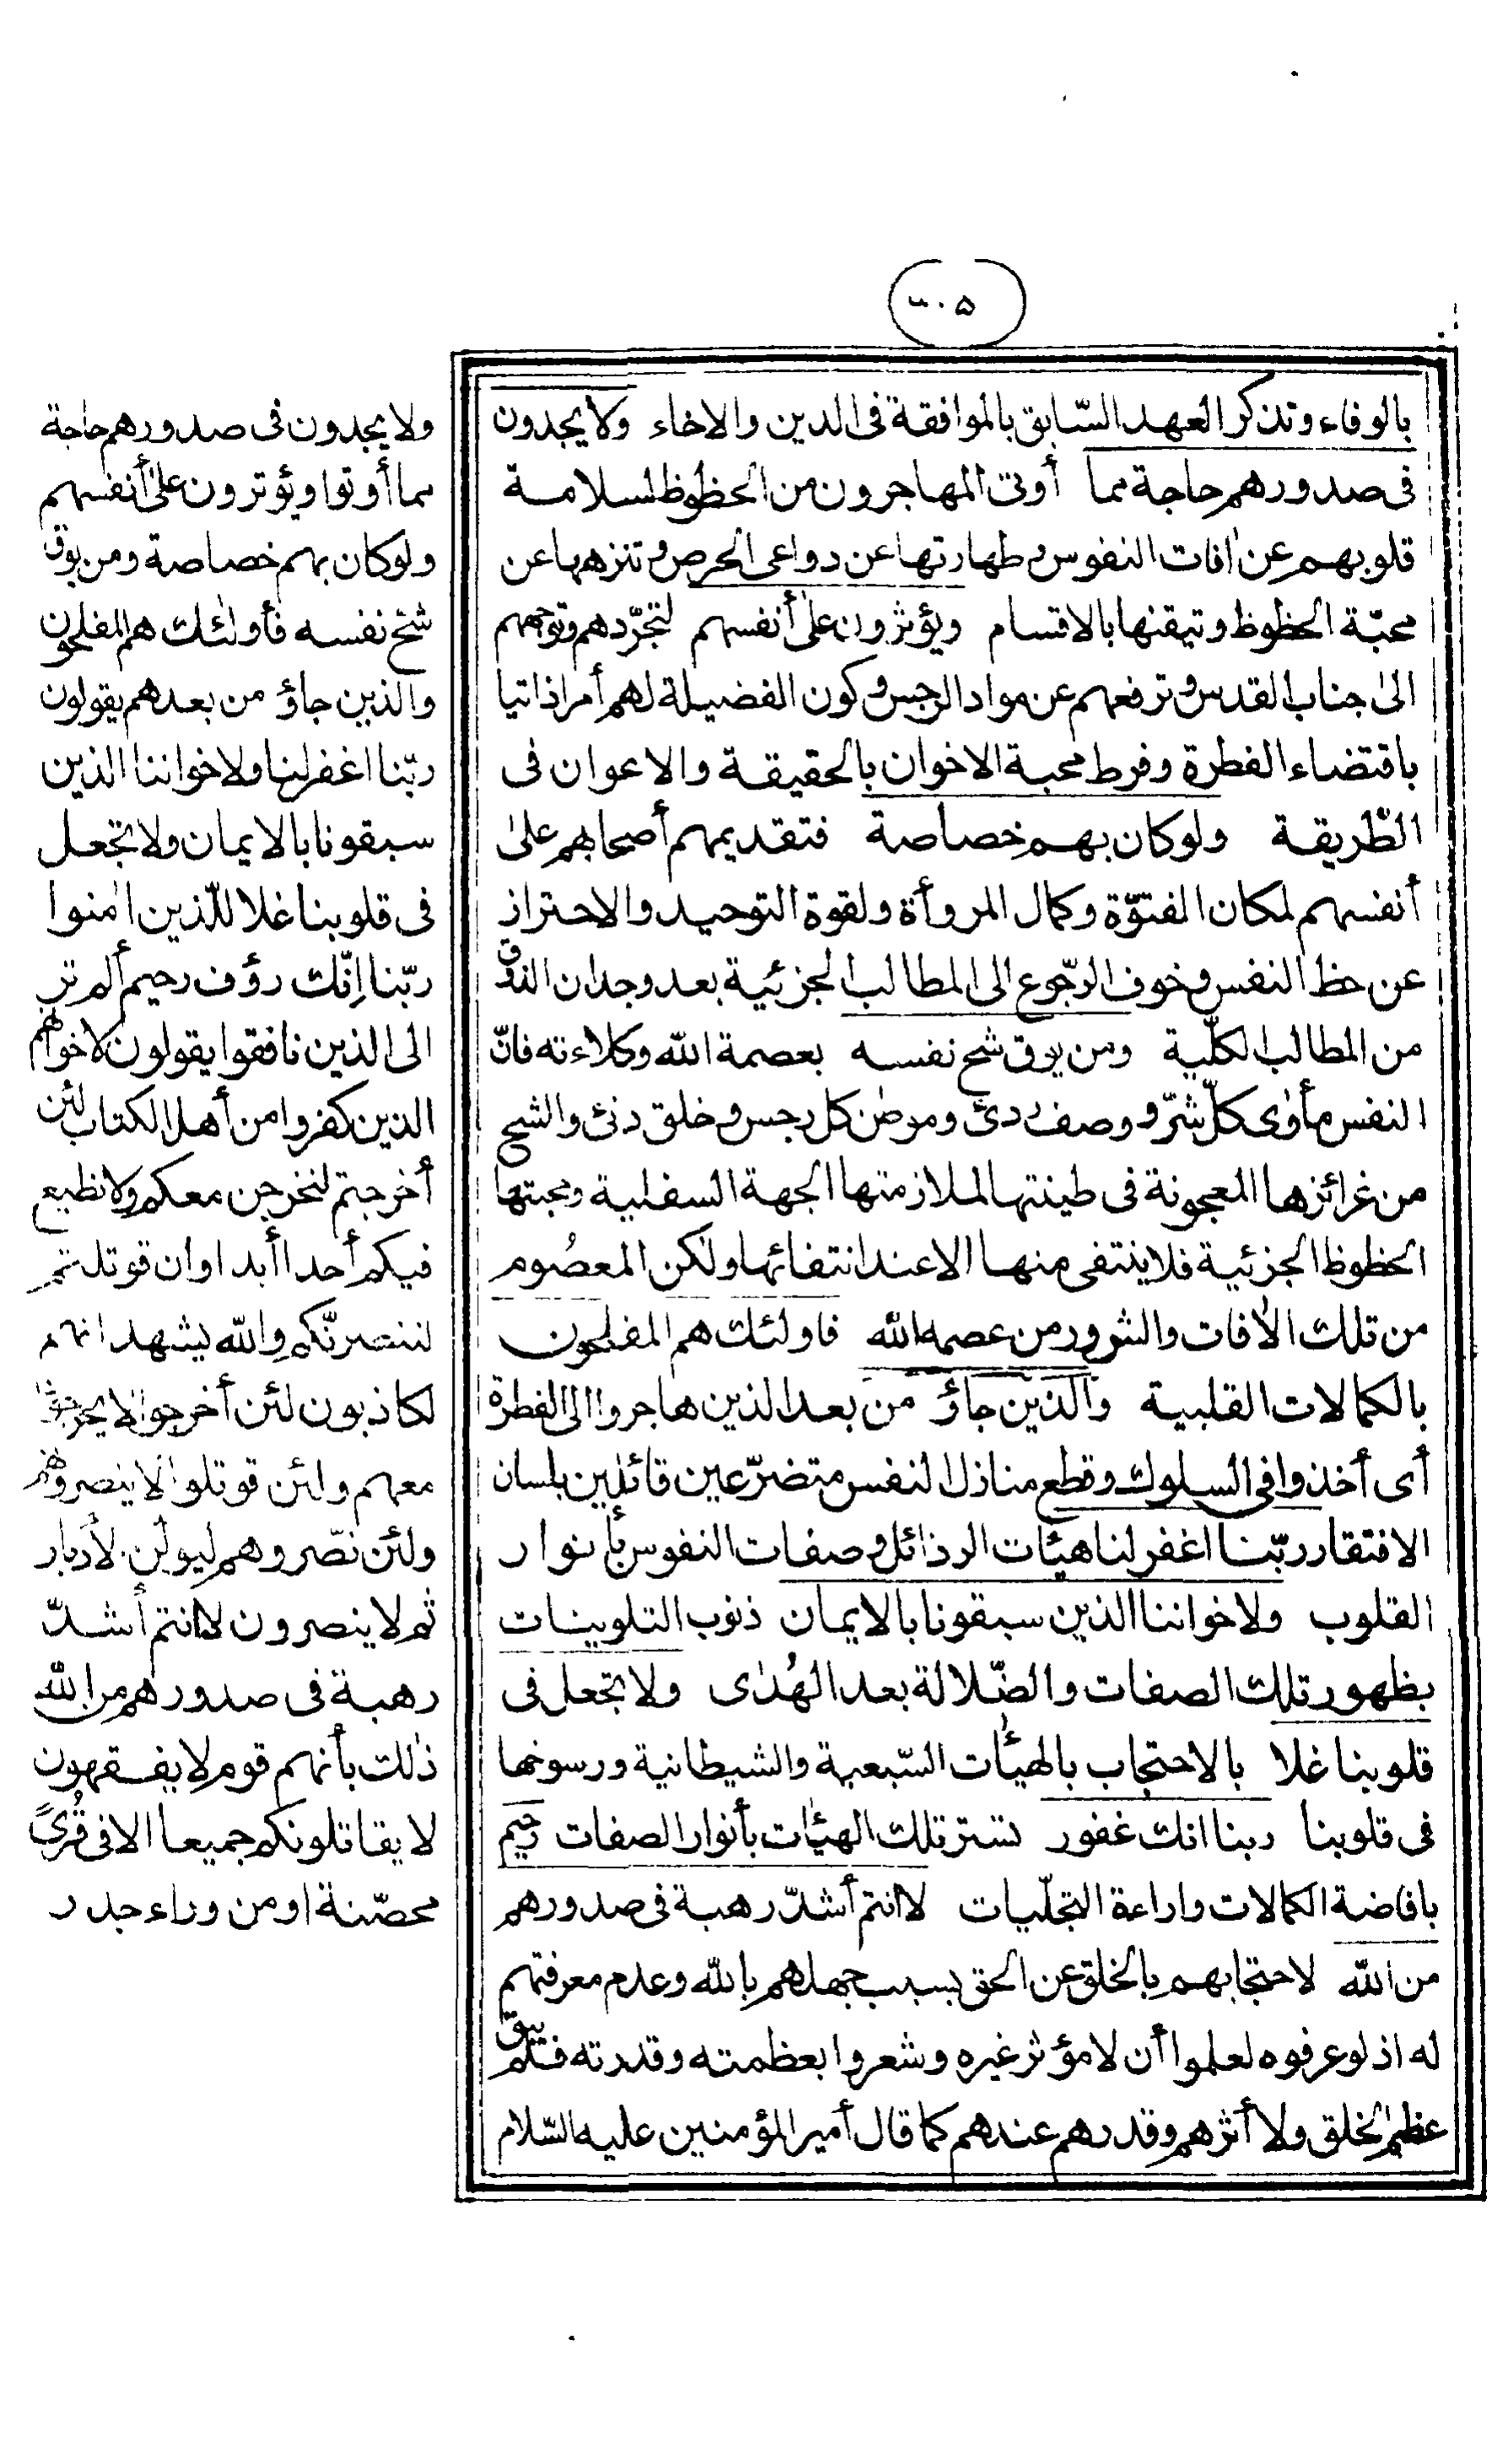 بالوفاء وتذكر العهد السّابق بالموافقة فى الدين والاخاء ولا يجدون
فى صدورهم حاجة مما أوتى المهاجرون من الحظوظ لسلامة
قلوبهم عن اٰفات النفوس وطهارتها عن دواعى الحرص وتنزهها عن
محبّة الحظوظ وتيقنها بالاقسام ويؤثرون علىٰ أنفسهم لتجرّدهم وتوجههم
الىٰ جناب القدس وترفعهم عن مواد الرجس وكون الفضيلة لهم أمرا ذاتيا
باقتضاء الفطرة وفرط محبة الاخوان بالحقيقة والاعوان فى
الطّريقة ولو كان بهم خصاصة فتقديمهم أصحابهم علىٰ
أنفسهم لمكان الفتوّة وكمال المروأة ولقوة التوحيد والاحتراز
عن حظ النفس وخوف الرّجوع الى المطالب الجزئية بعد وجدان الذوق
من المطالب الكلّية ومن يوق شح نفسه بعصمة الله وكلاءته فانّ
النفس مأوٰى كلّ شرّ و وصف ردئ وموطن كل رجس وخلق دنئ والشح
من غرائزها المعجونة فى طينتها لملازمتها الجهة السفلية ومحبتها
الحظوظ الجزئية فلا ينتفى منها الا عند انتفائها ولٰكن المعصُوم
من تلك الاٰفات والشرور من عصمه الله فاولئك هم المفلحون
بالكمالات القلبية والّذين جاؤ من بعد الذين هاجروا الى الفطرة
أى أخذوا فى السلوك وقطع منازل النفس متضرّعين قائلين بلسان
الافتقار ربّنا اغفر لنا هيئات الرذائل وصفات النفوس بأنوار
القلوب ولاخواننا الذين سبقونا بالايمان ذنوب التلوينات
بظهور تلك الصفات والضّلالة بعد الهُدٰى ولا تجعل فى
قلوبنا غلا بالاحتجاب بالهيئات السّبعية والشيطانية ورسوخها
فى قلوبنا ربنا انك غفور تستر تلك الهيئات بأنوار الصفات رحيم
بافاضة الكمالات واراءة التجلّيات لاانتم أشدّ رهبة فى صدورهم
من الله لاحتجابهم بالخلق عن الحق بسبب جهلهم بالله وعدم معرفتهم
له اذ لو عرفوه لعلموا أن لا مؤثر غيره وشعروا بعظمته وقدرته فلم يبق
عظم الخلق ولا أثرهم وقدرهم عندهم كما قال أمير المؤمنين عليه السّلام
ولا يجدون فى صدورهم حاجة
مما أوتوا ويؤثرون علىٰ أنفسهم
ولو كان بهم خصاصة ومن يوق
شحّ نفسه فأولٰئك هم المفلحون
والذين جاؤ من بعدهم يقولون
ربّنا اغفر لنا ولاخواننا الذين
سبقونا بالايمان ولا تجعل
فى قلوبنا غلا للّذين اٰمنوا
ربّنا إنّك رؤف رحيم ألم تر
الى الذين نافقوا يقولون لاخوانهم
الذين كفروا من أهل الكتاب لئن
أخرجتم لنخرجن معكم ولا نطيع
فيكم أحدا أبدا وان قوتلتم
لننصرنّكم والله يشهد انهم
لكاذبون لئن أخرجوا لا يخرجون
معهم ولئن قوتلوا لا ينصرونهم
ولئن نّصروهم ليولّن الأدبار
ثم لا ينصرون لاانتم أشدّ
رهبة فى صدورهم من الله
ذٰلك بأنهم قوم لا يفقهون
لا يقاتلونكم جميعا الا فى قُرىً
محصّنة او من وراء جدر